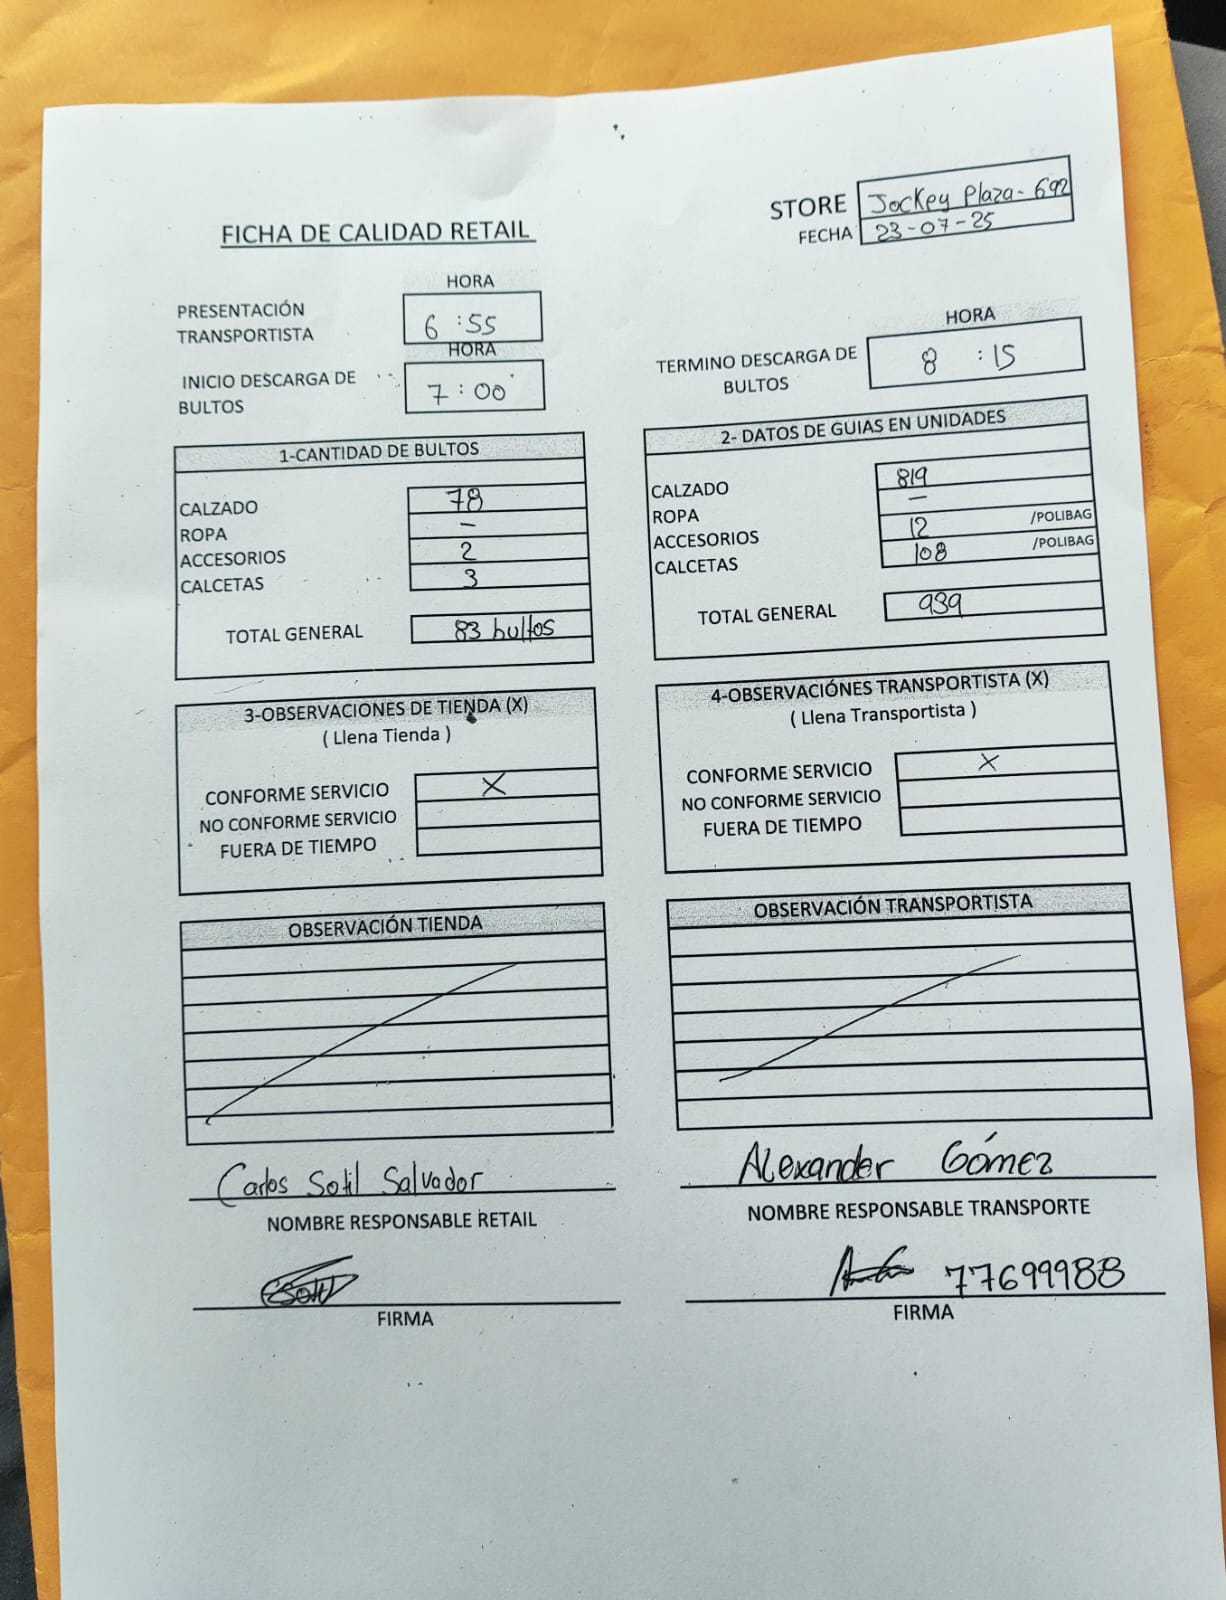 STORE Jockey Plaza - 692
FECHA 23-07-25
FICHA DE CALIDAD RETAIL
HORA
PRESENTACIÓN TRANSPORTISTA 6:55
HORA
INICIO DESCARGA DE BULTOS 7:00
HORA
TERMINO DESCARGA DE BULTOS 8:15
1-CANTIDAD DE BULTOS
CALZADO 78
ROPA –
ACCESORIOS 2
CALCETAS 3
TOTAL GENERAL 83 bultos
2- DATOS DE GUIAS EN UNIDADES
CALZADO 819
ROPA –
ACCESORIOS 12 /POLIBAG
CALCETAS 108 /POLIBAG
TOTAL GENERAL 939
3-OBSERVACIONES DE TIENDA (X)
( Llena Tienda )
CONFORME SERVICIO X
NO CONFORME SERVICIO
FUERA DE TIEMPO
4-OBSERVACIÓNES TRANSPORTISTA (X)
( Llena Transportista )
CONFORME SERVICIO X
NO CONFORME SERVICIO
FUERA DE TIEMPO
OBSERVACIÓN TIENDA
OBSERVACIÓN TRANSPORTISTA
Carlos Sotil Salvador
NOMBRE RESPONSABLE RETAIL
CSotil
FIRMA
Alexander Gómez
NOMBRE RESPONSABLE TRANSPORTE
77699988
FIRMA